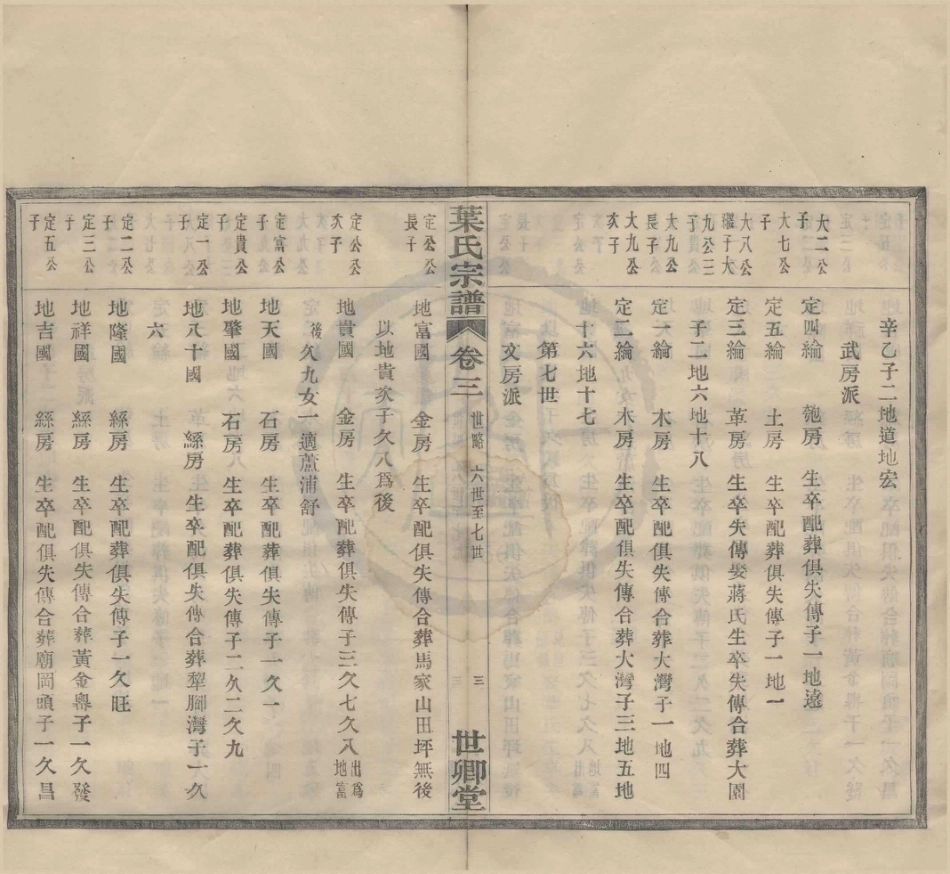 辛乙子二地道地宏
武房派
大二公子
定四綸 匏房 生卒配葬俱失傳子一地遠
大七公子
定五綸 土房 生卒配葬俱失傳子一地一
大八公繼子大九公三子
定三綸 革房 生卒失傳娶蔣氏生卒失傳合葬大園
子二地六地十八
大九公長子
定一綸 木房 生卒配俱失傳合葬大灣子一地四
大九公次子
定二綸 木房 生卒配俱失傳合葬大灣子三地五地
十六地十七
第七世
文房派
葉氏宗譜 卷三 世略 六世至七世 三 世卿堂
定公公長子
地富國 金房 生卒配俱失傳合葬馬家山田坪無後
以地貴次子久八爲後
定公公次子
地貴國 金房 生卒配葬俱失傳子三久七久八出爲地富
後久九女一適蘆浦舒
定富公子
地天國 石房 生卒配葬俱失傳子一久一
定貴公子
地肇國 石房 生卒配葬俱失傳子二久二久九
定一公子
地八十國 絲房 生卒配俱失傳合葬犂壁灣子一久
六
定二公子
地隆國 絲房 生卒配葬俱失傳子一久旺
定三公子
地祥國 絲房 生卒配俱失傳合葬黃金㘵子一久發
定五公子
地吉國 絲房 生卒配俱失傳合葬廟岡頭子一久昌